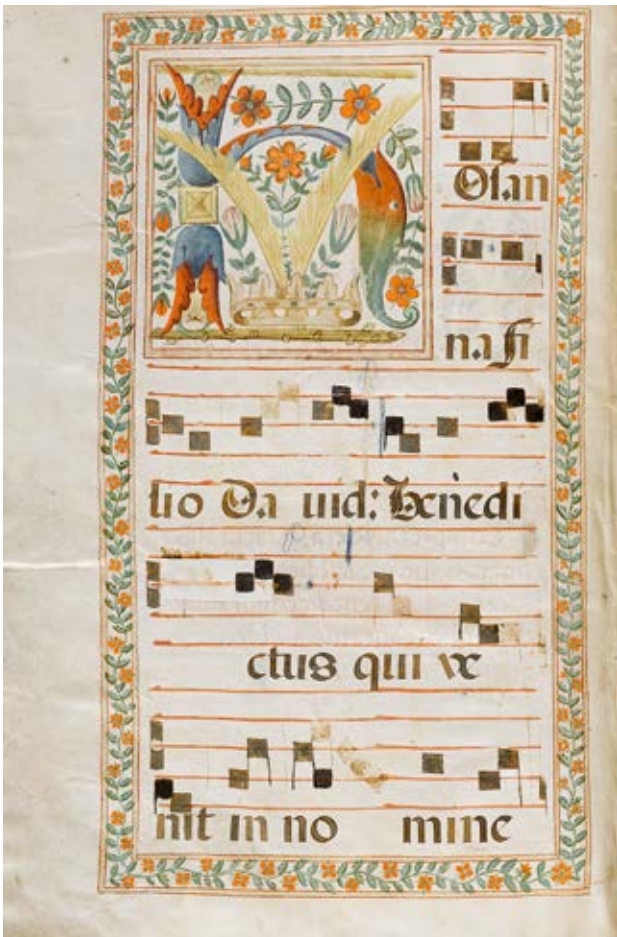 HOsan
na fi
lio Da uid: benedi
ctus qui ve
nit in no mine